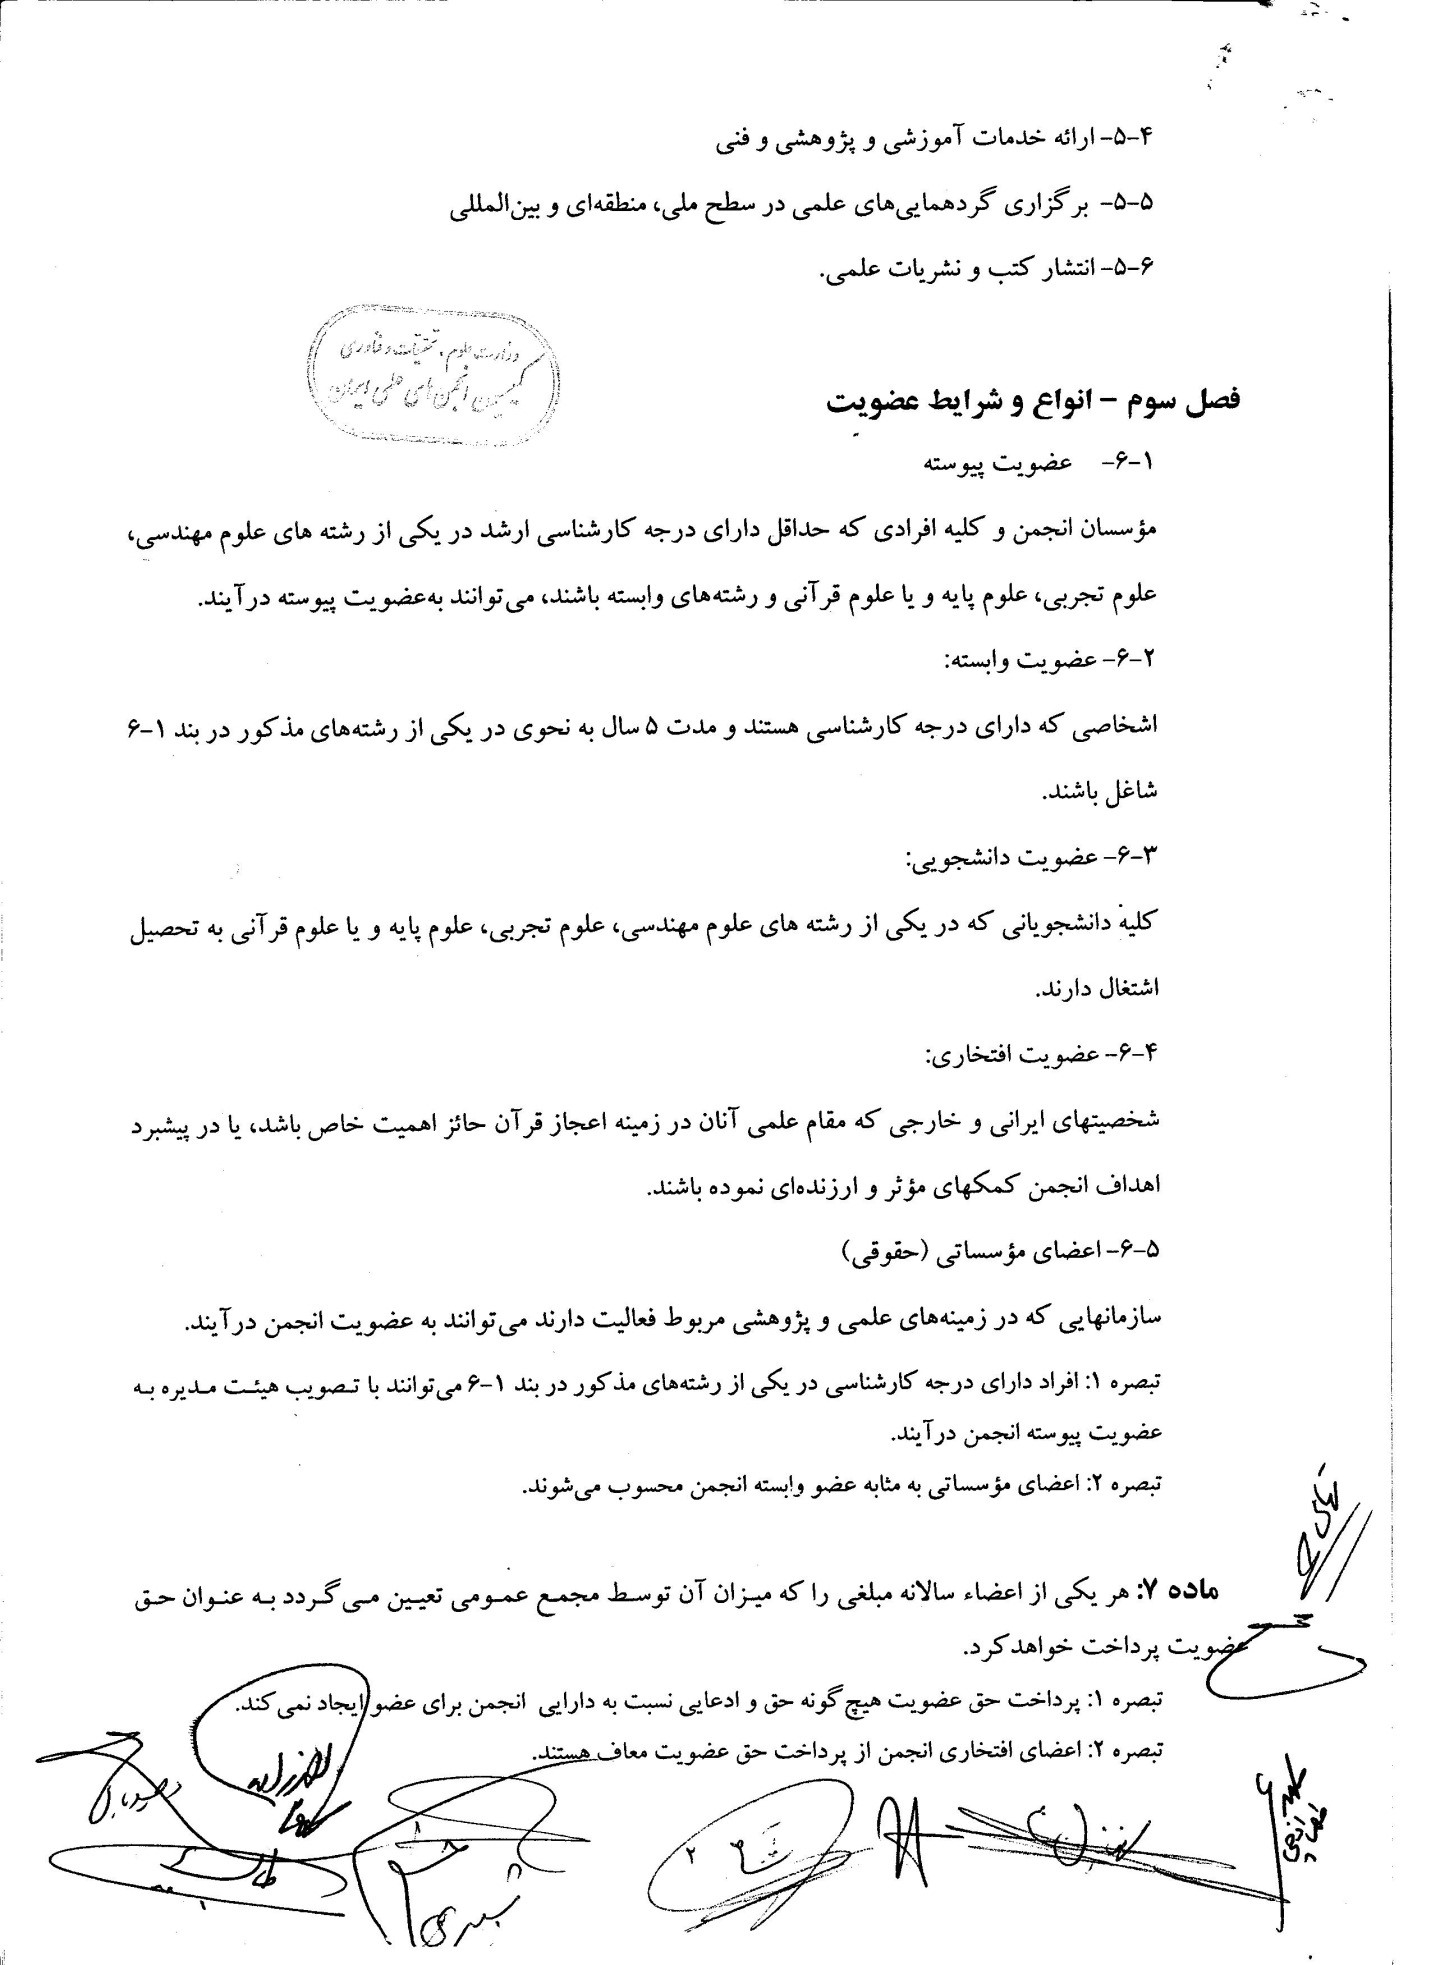 ۵-۴- ارائه خدمات آموزشی و پژوهشی و فنی
۵-۵- برگزاری گردهمایی‌های علمی در سطح ملی، منطقه‌ای و بین‌المللی
۵-۶- انتشار کتب و نشریات علمی.
وزارت علوم، تحقیقات و فناوری
کمیسیون انجمن‌های علمی ایران
فصل سوم – انواع و شرایط عضویت
۶-۱- عضویت پیوسته
مؤسسان انجمن و کلیه افرادی که حداقل دارای درجه کارشناسی ارشد در یکی از رشته های علوم مهندسی،
علوم تجربی، علوم پایه و یا علوم قرآنی و رشته‌های وابسته باشند، می‌توانند به‌عضویت پیوسته درآیند.
۶-۲- عضویت وابسته:
اشخاصی که دارای درجه کارشناسی هستند و مدت ۵ سال به نحوی در یکی از رشته‌های مذکور در بند ۱-۶
شاغل باشند.
۶-۳- عضویت دانشجویی:
کلیه دانشجویانی که در یکی از رشته های علوم مهندسی، علوم تجربی، علوم پایه و یا علوم قرآنی به تحصیل
اشتغال دارند.
۶-۴- عضویت افتخاری:
شخصیتهای ایرانی و خارجی که مقام علمی آنان در زمینه اعجاز قرآن حائز اهمیت خاص باشد، یا در پیشبرد
اهداف انجمن کمکهای مؤثر و ارزنده‌ای نموده باشند.
۶-۵- اعضای مؤسساتی (حقوقی)
سازمانهایی که در زمینه‌های علمی و پژوهشی مربوط فعالیت دارند می‌توانند به عضویت انجمن درآیند.
تبصره ۱: افراد دارای درجه کارشناسی در یکی از رشته‌های مذکور در بند ۱-۶ می‌توانند با تصویب هیئت مدیره به
عضویت پیوسته انجمن درآیند.
تبصره ۲: اعضای مؤسساتی به مثابه عضو وابسته انجمن محسوب می‌شوند.
ماده ۷: هر یکی از اعضاء سالانه مبلغی را که میزان آن توسط مجمع عمومی تعیین می‌گردد به عنوان حق
عضویت پرداخت خواهدکرد.
تبصره ۱: پرداخت حق عضویت هیچ‌گونه حق و ادعایی نسبت به دارایی انجمن برای عضو ایجاد نمی‌کند.
تبصره ۲: اعضای افتخاری انجمن از پرداخت حق عضویت معاف هستند.